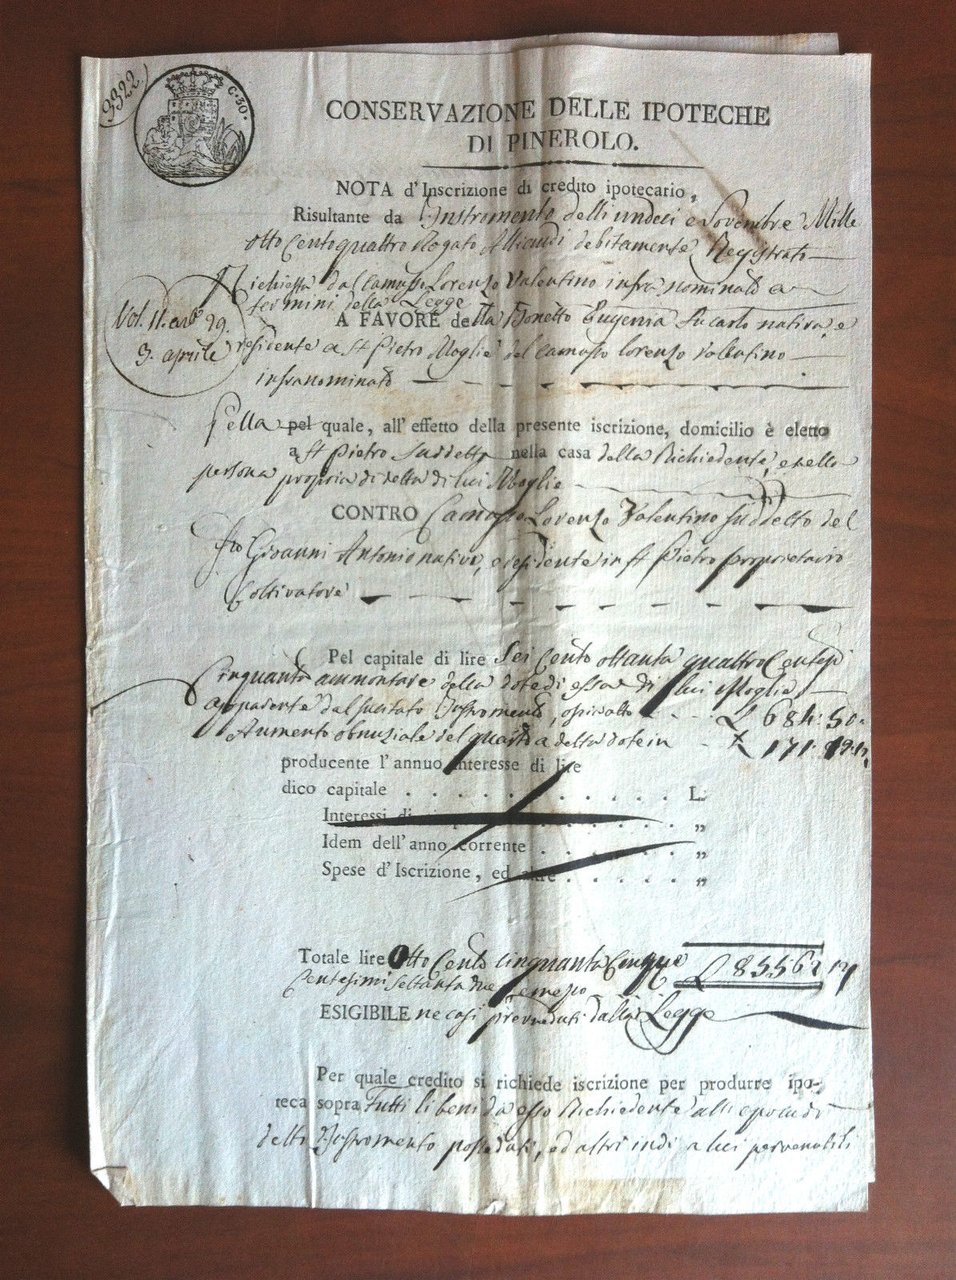 3322
C. 50.
CONSERVAZIONE DELLE IPOTECHE
DI PINEROLO.
NOTA d'Inscrizione di credito ipotecario,
Risultante da Instromento delli undeci Novembre Mille
otto Cento quattro Rogato debitamente Reggistrato
Richiesta dal Lorenzo Valentino infra nominato a
termini della Legge
Vol. 11. 99.
3. aprile
A FAVORE della Bonetto Eugenia fu Carlo nativa e
residente a St Pietro Moglie del Lorenzo Valentino
infranominato
pel quale, all'effetto della presente iscrizione, domicilio è eletto
a St Pietro suddetto nella casa della Richiedente e nella
persona propria di detta di lui Moglie
CONTRO Lorenzo Valentino suddetto del
fu Giovanni Antonio nativo, e residente in St Pietro proprietario
Coltivatore
Pel capitale di lire Sei Cento ottanta quattro Centesi
Cinquanta ammontare della dote di essa di lui Moglie
apparente dal succitato Instromento, L 684. 50.
Aumento obnuziale del quarto a detta dote in L 171. 12.
producente l'annuo interesse di lire
dico capitale . . . . . . . . . . . . L.
Interessi di . . . . . . . „
Idem dell'anno corrente . . . . . . . „
Spese d'Iscrizione, ed altre . . . . . . „
Totale lire Otto Cento Cinquanta Cinque L 855 62
Centesimi
ESIGIBILE ne casi preveduti dalla Legge
Per quale credito si richiede iscrizione per produrre ipo-
teca sopra Tutti li beni da esso Richiedente all'epoca di
detto Instromento posseduti, ed altri indi a lui pervenibili